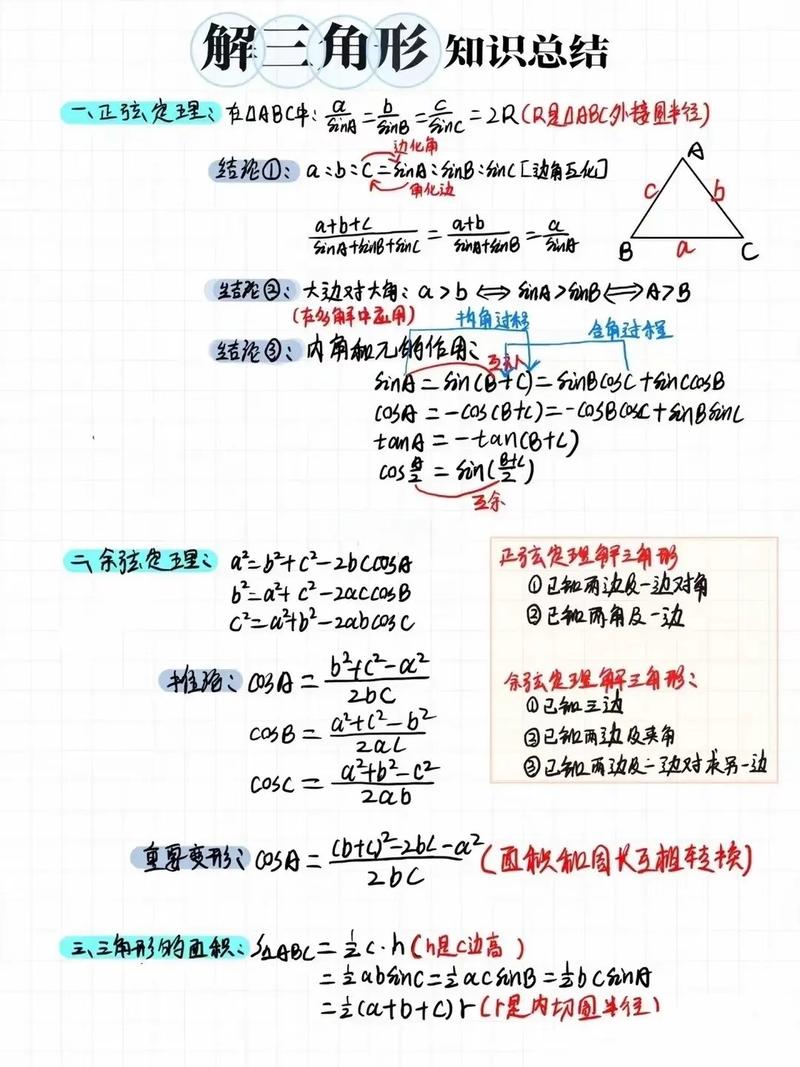 解三角形 知识总结
一、正弦定理: 在△ABC中: a/sinA = b/sinB = c/sinC = 2R (R是△ABC外接圆半径)
边化角
结论①: a:b:c = sinA:sinB:sinC [边角互化]
角化边
(a+b+c)/(sinA+sinB+sinC) = (a+b)/(sinA+sinB) = a/sinA
A
c b
B a C
结论②: 大边对大角: a>b ⟺ sinA>sinB ⟺ A>B
(在多解中应用)
拆角过程 合角过程
结论③: 内角和π的作用:
互补
sinA = sin(B+C) = sinBcosC + sinCcosB
cosA = -cos(B+C) = -cosBcosC + sinBsinC
tanA = -tan(B+C)
cos A/2 = sin((B+C)/2)
互余
二、余弦定理: a²=b²+c²-2bccosA
b²=a²+c²-2accosB
c²=a²+b²-2abcosC
推论: cosA = (b²+c²-a²)/2bc
cosB = (a²+c²-b²)/2ac
cosC = (a²+b²-c²)/2ab
正弦定理解三角形
①已知两边及一边对角
②已知两角及一边
余弦定理解三角形:
①已知三边
②已知两边及夹角
③已知两边及一边对求另一边
重要变形: cosA = ((b+c)²-2bc-a²)/2bc (面积和周长互相转换)
三、三角形的面积: S△ABC = ½c·h (h是c边高)
= ½absinC = ½acsinB = ½bcsinA
= ½(a+b+c)r (r是内切圆半径)